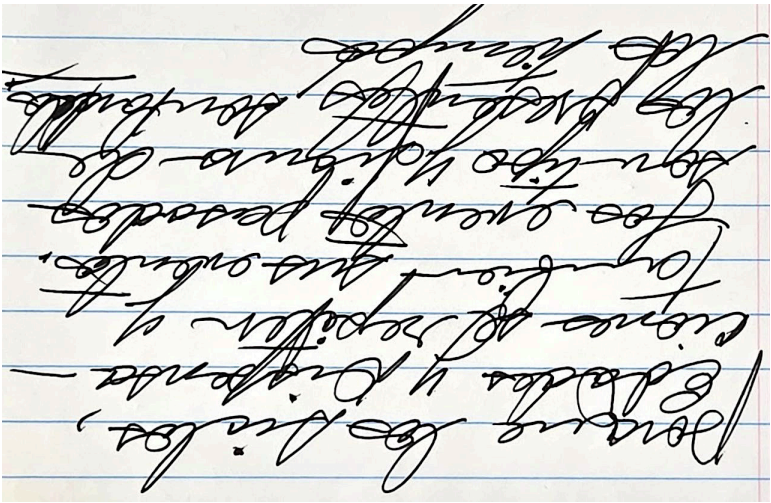 porque los siglos,
Edades y Dispensa-
ciones se repiten y
también sus eventos.
Los eventos pasados
son tipo y figura de
los presentes, sumando
los tiempos